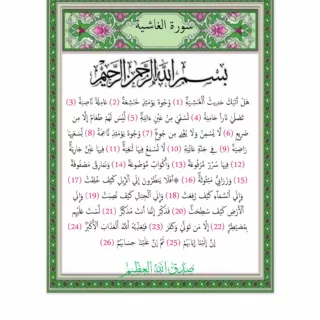 سورة الغاشية
بسم الله الرحمن الرحيم
هَلْ أَتَاكَ حَدِيثُ الْغَاشِيَةِ (1) وُجُوهٌ يَوْمَئِذٍ خَاشِعَةٌ (2) عَامِلَةٌ نَاصِبَةٌ (3)
تَصْلَىٰ نَاراً حَامِيَةً (4) تُسْقَىٰ مِنْ عَيْنٍ آنِيَةٍ (5) لَّيْسَ لَهُمْ طَعَامٌ إِلَّا مِن
ضَرِيعٍ (6) لَّا يُسْمِنُ وَلَا يُغْنِي مِن جُوعٍ (7) وُجُوهٌ يَوْمَئِذٍ نَّاعِمَةٌ (8) لِّسَعْيِهَا
رَاضِيَةٌ (9) فِي جَنَّةٍ عَالِيَةٍ (10) لَّا تَسْمَعُ فِيهَا لَاغِيَةً (11) فِيهَا عَيْنٌ جَارِيَةٌ
(12) فِيهَا سُرُرٌ مَّرْفُوعَةٌ (13) وَأَكْوَابٌ مَّوْضُوعَةٌ (14) وَنَمَارِقُ مَصْفُوفَةٌ
(15) وَزَرَابِيُّ مَبْثُوثَةٌ (16) أَفَلَا يَنظُرُونَ إِلَى الْإِبِلِ كَيْفَ خُلِقَتْ (17)
وَإِلَى السَّمَاءِ كَيْفَ رُفِعَتْ (18) وَإِلَى الْجِبَالِ كَيْفَ نُصِبَتْ (19) وَإِلَى
الْأَرْضِ كَيْفَ سُطِحَتْ (20) فَذَكِّرْ إِنَّمَا أَنتَ مُذَكِّرٌ (21) لَّسْتَ عَلَيْهِم
بِمُصَيْطِرٍ (22) إِلَّا مَن تَوَلَّىٰ وَكَفَرَ (23) فَيُعَذِّبُهُ اللَّهُ الْعَذَابَ الْأَكْبَرَ (24)
إِنَّ إِلَيْنَا إِيَابَهُمْ (25) ثُمَّ إِنَّ عَلَيْنَا حِسَابَهُمْ (26)
صدق الله العظيم